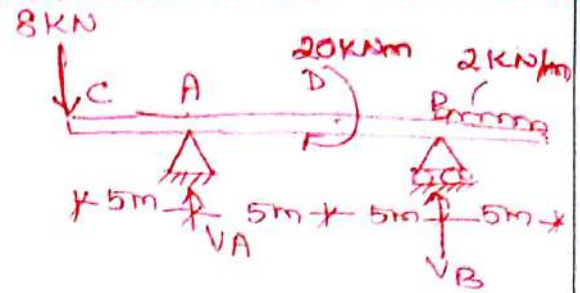 8KN
20KNm
2KN/m
C
A
D
B
5m
5m
5m
5m
VA
VB